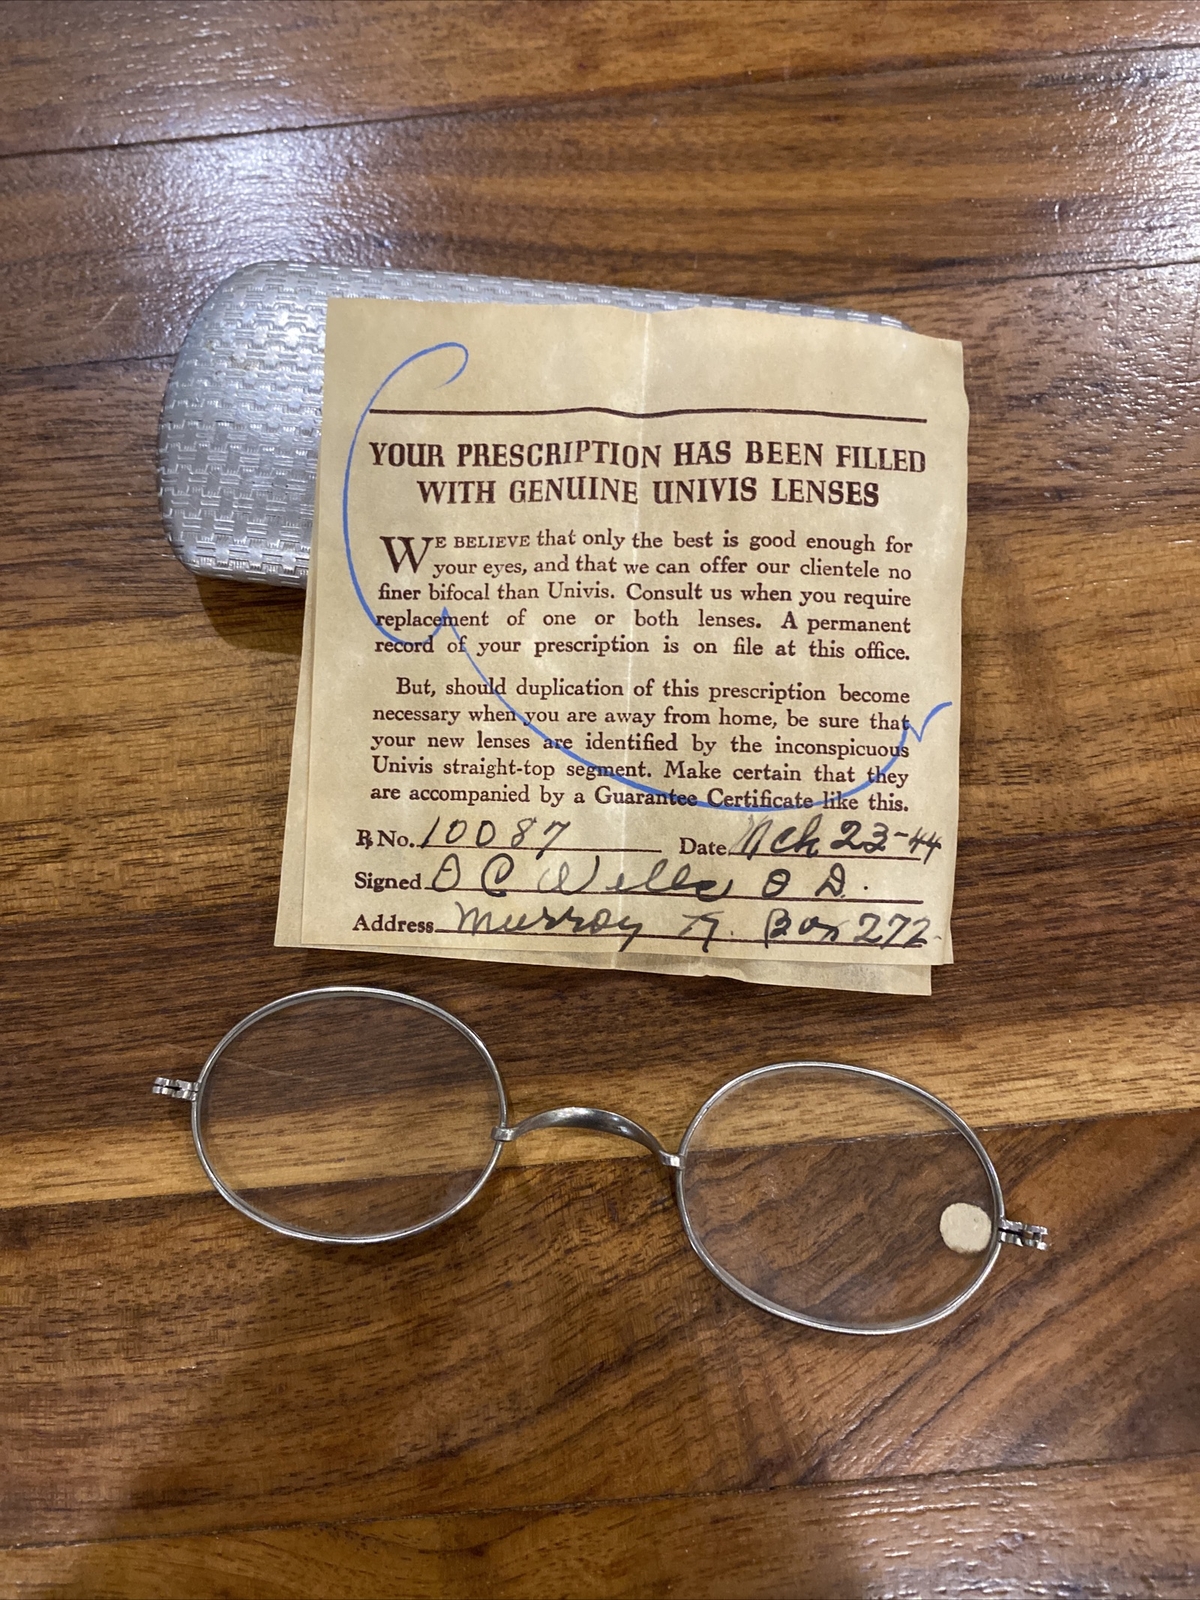 YOUR PRESCRIPTION HAS BEEN FILLED
WITH GENUINE UNIVIS LENSES
WE BELIEVE that only the best is good enough for
your eyes, and that we can offer our clientele no
finer bifocal than Univis. Consult us when you require
replacement of one or both lenses. A permanent
record of your prescription is on file at this office.
But, should duplication of this prescription become
necessary when you are away from home, be sure that
your new lenses are identified by the inconspicuous
Univis straight-top segment. Make certain that they
are accompanied by a Guarantee Certificate like this.
℞ No. 10087 Date Mch 23-44
Signed O C Wells O D.
Address Murray K. Box 272